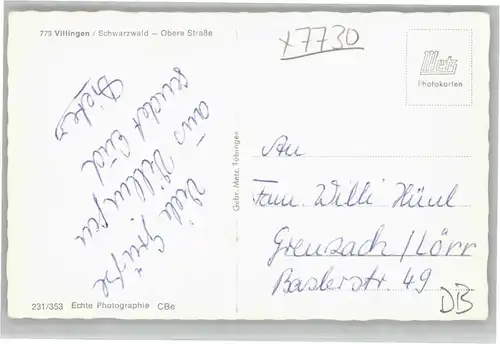 773 Villingen / Schwarzwald — Obere Straße
x7730
Metz
Photokarten
Viele Grüße
aus Villingen
sendet Euch
Dieter
Gebr. Metz, Tübingen
An
Fam. Willi Hünl
Grenzach / Lörr
Baslerstr. 49
DB
231/353 Echte Photographie CBe